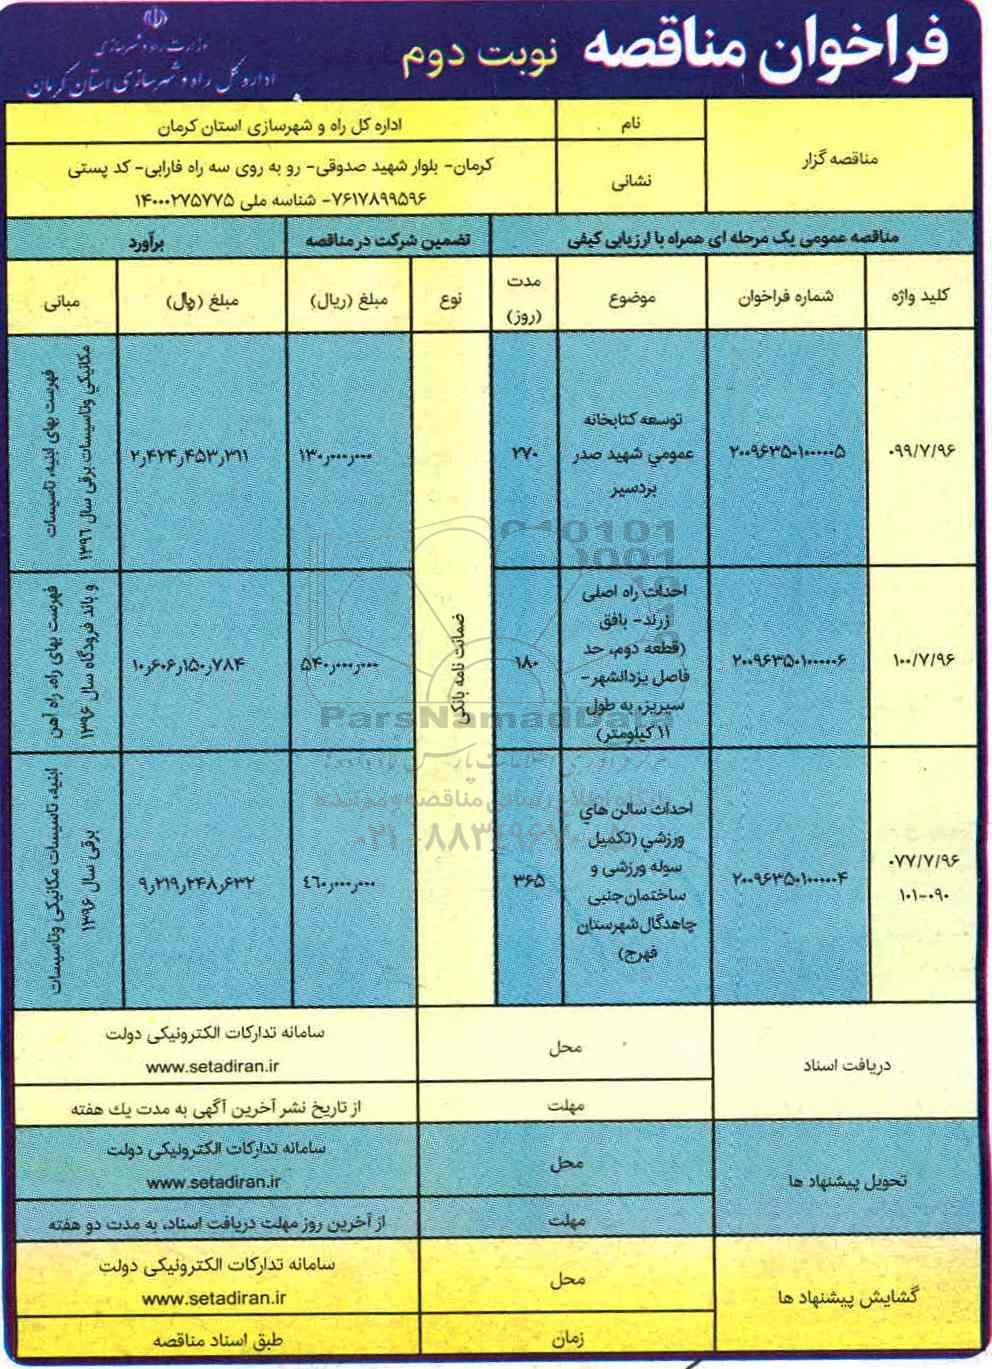 فراخوان مناقصه نوبت دوم
وزارت راه و شهرسازی
اداره کل راه و شهرسازی استان کرمان
مناقصه گزار
نام
اداره کل راه و شهرسازی استان کرمان
نشانی
کرمان- بلوار شهید صدوقی- رو به روی سه راه فارابی- کد پستی
۷۶۱۷۸۹۹۵۹۶- شناسه ملی ۱۴۰۰۰۲۷۵۷۷۵
مناقصه عمومی یک مرحله ای همراه با ارزیابی کیفی
تضمین شرکت در مناقصه
برآورد
کلید واژه
شماره فراخوان
موضوع
مدت
(روز)
نوع
مبلغ (ریال)
مبلغ (ریال)
مبانی
۰۹۹/۷/۹۶
۲۰۰۹۶۳۵۰۱۰۰۰۰۰۵
توسعه کتابخانه
عمومي شهيد صدر
بردسیر
۲۷۰
ضمانت نامه بانکی
۱۳۰,۰۰۰,۰۰۰
۲,۴۲۴,۴۵۳,۳۱۱
فهرست بهای ابنیه، تاسیسات
مكانيكي وتاسیسات برقی سال ۱۳۹۶
۱۰۰/۷/۹۶
۲۰۰۹۶۳۵۰۱۰۰۰۰۰۶
احداث راه اصلی
زرند- بافق
(قطعه دوم، حد
فاصل یزدانشهر-
سیریز، به طول
۱۱ کیلومتر)
۱۸۰
۵۴۰,۰۰۰,۰۰۰
۱۰,۶۰۶,۱۵۰,۷۸۴
فهرست بهای راه، راه آهن
و باند فرودگاه سال ۱۳۹۶
۰۷۷/۷/۹۶
۱۰۱-۰۹۰
۲۰۰۹۶۳۵۰۱۰۰۰۰۰۴
احداث سالن هاي
ورزشي (تکمیل
سوله ورزشی و
ساختمان جنبی
چاهدگال شهرستان
فهرج)
۳۶۵
٤٦۰,۰۰۰,۰۰۰
۹,۲۱۹,۲۴۸,۶۳۲
ابنیه، تاسیسات مکانیکی وتاسیسات
برقی سال ۱۳۹۶
ParsNamadData
پایگاه اطلاع رسانی مناقصه و مزایده
دریافت اسناد
محل
سامانه تدارکات الکترونیکی دولت
www.setadiran.ir
مهلت
از تاریخ نشر آخرین آگهی به مدت یک هفته
تحویل پیشنهاد ها
محل
سامانه تدارکات الکترونیکی دولت
www.setadiran.ir
مهلت
از آخرین روز مهلت دریافت اسناد، به مدت دو هفته
گشایش پیشنهاد ها
محل
سامانه تدارکات الکترونیکی دولت
www.setadiran.ir
زمان
طبق اسناد مناقصه